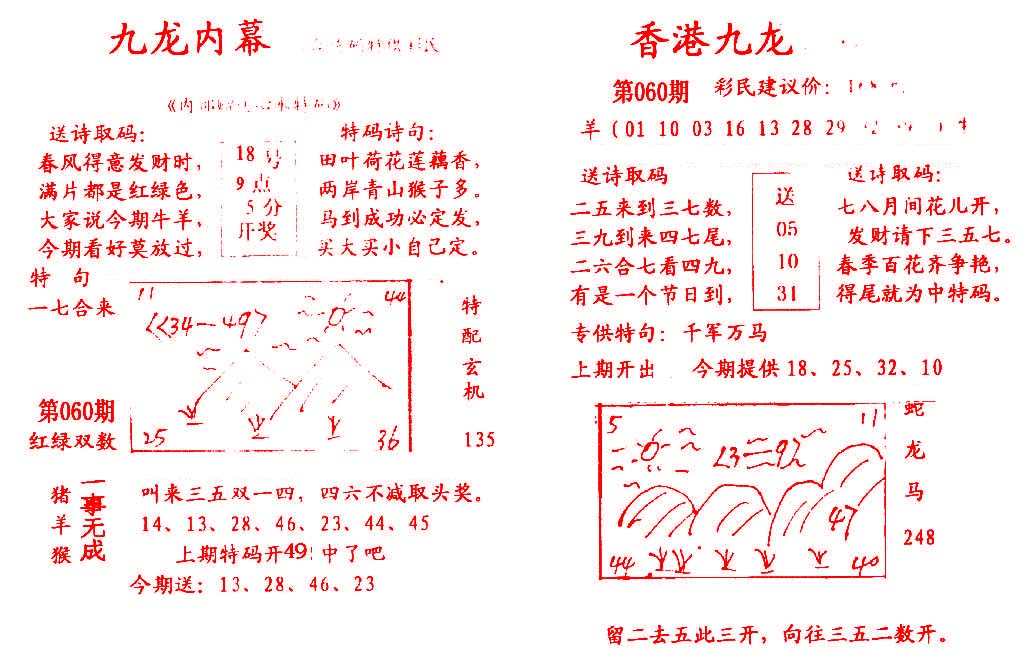 九龙内幕
送诗取码:
春风得意发财时,
满片都是红绿色,
大家说今期牛羊,
今期看好莫放过,
18号
9点
5分
开奖
特码诗句:
田叶荷花莲藕香,
两岸青山猴子多。
马到成功必定发,
买大买小自己定。
特 句
一七合来
第060期
红绿双数
11
44
25
36
特配玄机
135
猪羊猴
一事无成
叫来三五双一四,四六不减取头奖。
14、13、28、46、23、44、45
上期特码开49! 中了吧
今期送: 13、28、46、23
香港九龙
第060期 彩民建议价:
羊(01 10 03 16 13 28 29
送诗取码
二五来到三七数,
三九到来四七尾,
二六合七看四九,
有是一个节日到,
送
05
10
31
送诗取码:
七八月间花儿开,
发财请下三五七。
春季百花齐争艳,
得尾就为中特码。
专供特句: 千军万马
上期开出 今期提供18、25、32、10
5
11
47
44
40
蛇龙马
248
留二去五此三开,向往三五二数开。